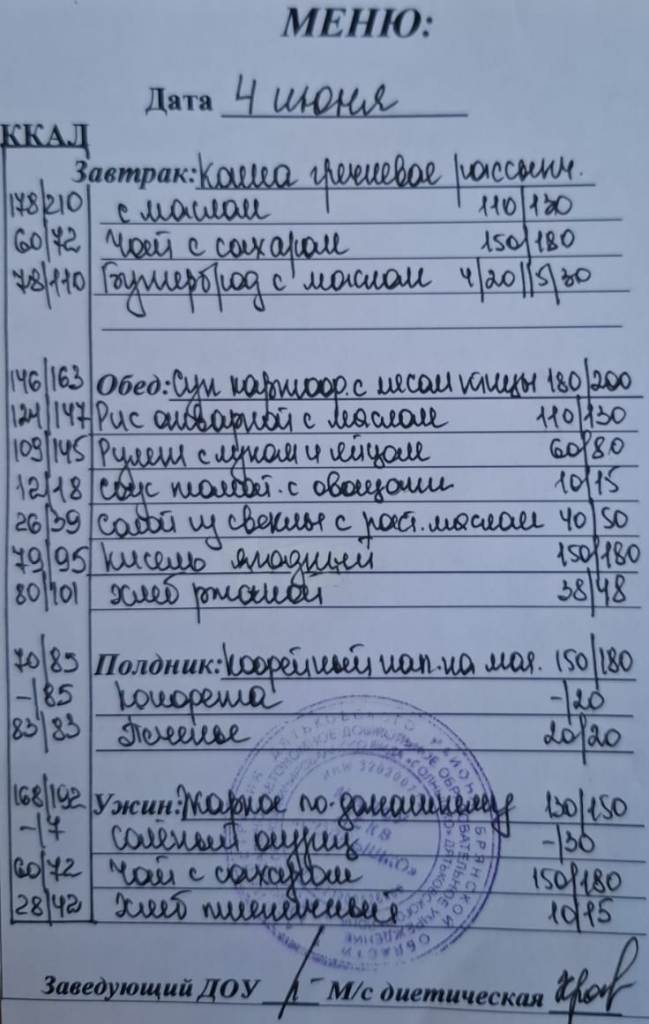 МЕНЮ:
Дата 4 июня
ККАЛ
Завтрак: Каша гречневая рассыпч.
178/210 с маслом 110/130
60/72 Чай с сахаром 150/180
78/110 Бутерброд с маслом 4/20//5/30
146/163 Обед: Суп картоф. с мясом птицы 180/200
124/147 Рис отварной с маслом 110/130
109/145 Рулет с луком и яйцом 60/80
12/18 Соус томат. с овощами 10/15
26/39 Салат из свеклы с раст. маслом 40/50
79/95 Кисель ягодный 150/180
80/101 Хлеб ржаной 38/48
70/85 Полдник: Кофейный нап. на мол. 150/180
-/85 Конфета -/20
83/83 Печенье 20/20
168/192 Ужин: Жаркое по-домашнему 130/150
-/7 Солёный огурец -/30
60/72 Чай с сахаром 150/180
28/42 Хлеб пшеничный 10/15
Заведующий ДОУ М/с диетическая
БРЯНСКОЙ ОБЛАСТИ